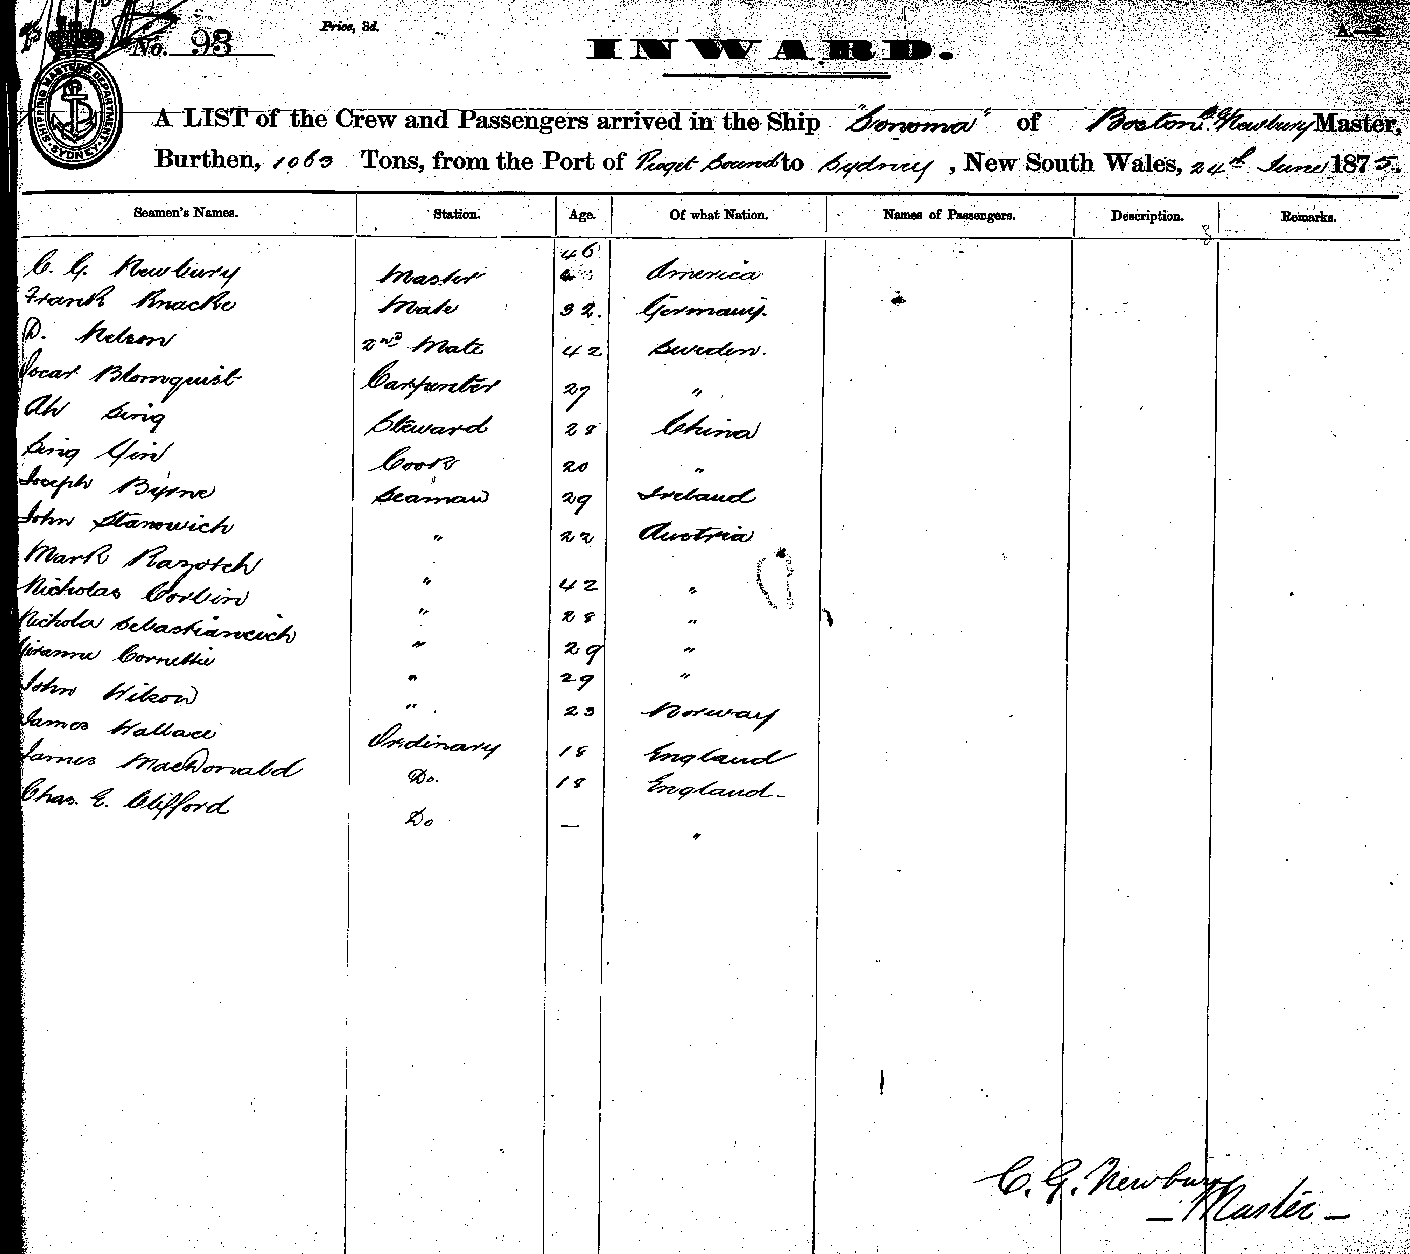 No. 93
Price, 3d.
INWARD.
SHIPPING MASTERS DEPARTMENT SYDNEY
A LIST of the Crew and Passengers arrived in the Ship "Sonoma" of Boston, Newbury Master,
Burthen, 1063 Tons, from the Port of Puget Sound to Sydney, New South Wales, 24th June 1875.
Seamen's Names. Station. Age. Of what Nation. Names of Passengers. Description. Remarks.
C. G. Newbury Master 46 America
Frank Knacke Mate 32. Germany.
D. Nelson 2nd Mate 42 Sweden.
Oscar Blomquist Carpenter 27 "
Ah Sing Steward 28 China
Sing Gin Cook 20 "
Joseph Byrne Seaman 29 Ireland
John Stanowich " 22 Austria
Mark Razotch " 42 "
Nicholas Corbin " 28 "
Nichola Sebastianovich " 29 "
Cornettie " 29 "
John Wilson " 23 Norway
James Wallace Ordinary 18 England
James MacDonald Do. 18 England -
Chas. E. Clifford Do — "
C. G. Newbury
- Master -